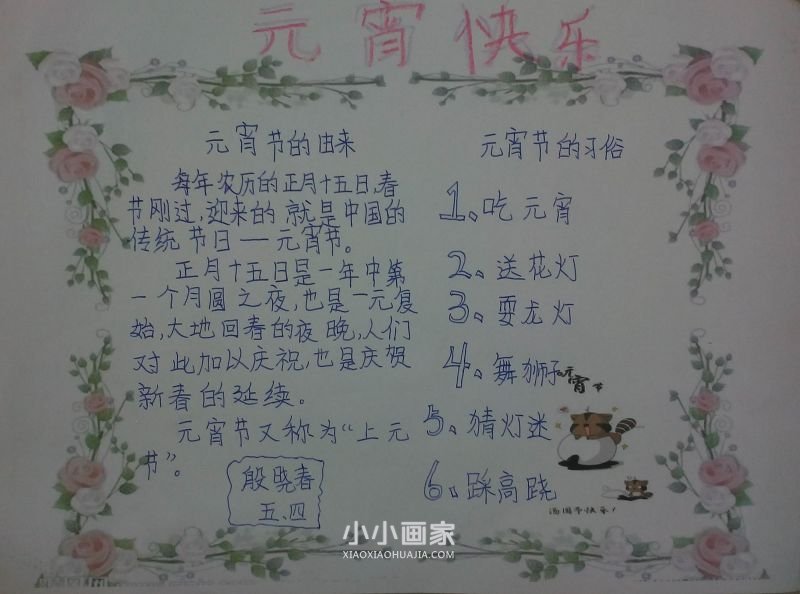 元宵快乐
元宵节的由来
每年农历的正月十五日,春
节刚过,迎来的就是中国的
传统节日——元宵节。
正月十五日是一年中第
一个月圆之夜,也是一元复
始,大地回春的夜晚,人们
对此加以庆祝,也是庆贺
新春的延续。
元宵节又称为“上元
节”。
殷晓春
五、四
元宵节的习俗
1、吃元宵
2、送花灯
3、耍龙灯
4、舞狮子
5、猜灯迷
6、踩高跷
元宵节
汤圆节快乐!
小小画家
XIAOXIAOHUAJIA.COM